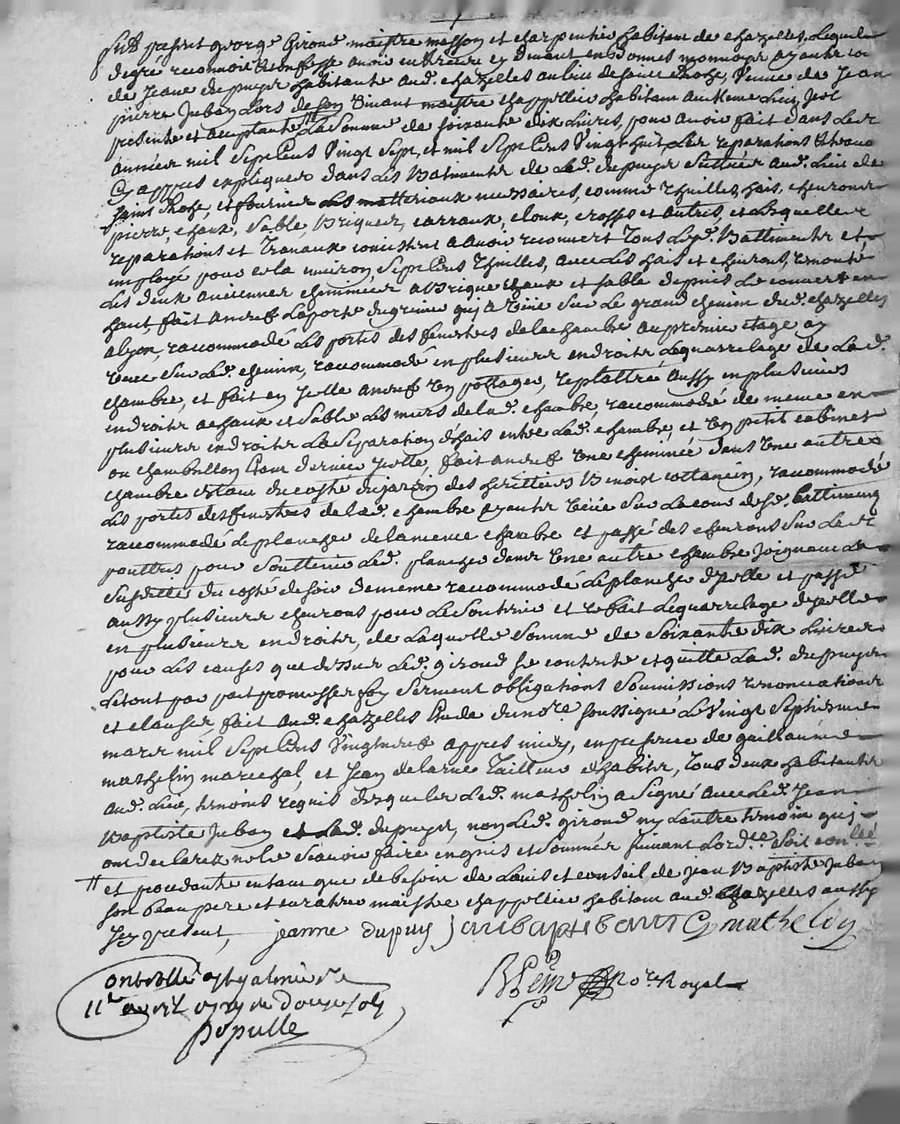 Fut present george Giroud maistre masson et charpentier habitant de chazelles, lequel
de gre reconnoit et confesse avoir entierement cy devant en bonnes monnoyes ayant
de Jeane depuyer habitante aud. chazelles au lieu de saint Roch, veuve de Jean
pierre Juban lors de son vivant maistre chappellier habitant au meme lieu, icy
presente et acceptante la somme de soixante dix livres, pour avoir fait dans les
années mil sept cens vingt sept, et mil sept cens vingt huit, les reparations et travaux
cy appres expliquées dans les batiments de lad. depuyer scittuées aud. lieu de
saint Roch, et fournier les matteriaux necessaires, comme thuilles, hais, chevrons
pierre, chaux, sable, briques, carraux, cloux, crosses et autres, et lesquelles
reparations et travaux consistent a avoir recouvert tous lesd. battiments et
employé pour cela environ sept cens thuilles, avec les hais et chevrons, remonté
les deux anciennes cheminées a brique chaux et sable depuis le couvert en
haut, fait a neuf la porte du grenier qui a veüe sur le grand chemin dud. chazelles
a lyon, raccommodé les portes des fenestres de la chambre au premier etage ay
veue sur led. chemin, raccommodé en plusieurs endroits le quarrelage de lad.
chambre, et fait en icelle a neuf un pottager, replattré aussy en plusieurs
endroits a chaux et sable les murs de lad. chambre, raccommodé de meme en
plusieurs endroits la separation d'hais entre lad. chambre et un petit cabinet
ou chambrillon pour dernier icelle, fait a neuf une cheminée dans une autre
chambre estant du costé du jardin des herittiers Benoist cottancin, raccommodé
les portes des fenestres de lad. chambre ayants veüe sur la cour desd. battiments
raccommodé le plancher de la meme chambre et passé des chevrons sur les
pouttres pour souttenir led. plancher dans une autre chambre joignant la
susditte du costé de soir de meme raccommodé le plancher d'icelle et passé
aussy plusieurs chevrons pour le soutenir et refait le quarrelage d'icelle
en plusieurs endroits, de laquelle somme de soixante dix livres
pour les causes que dessus led. giroud se contente et quitte lad. depuyer
le tout par pait promesses foy serment obligations soumissions renonciations
et clauses fait aud. chazelles etude du nore. soussigné le vingt septieme
mars mil sept cens vingt neuf appres midy, en presence de guillaume
mathelin marechal, et Jean delarue tailleur d'habits, tous deux habitants
aud. lieu, temoins requis desquels led. mathelin a signé avec led. Jean
Baptiste Juban et lad. depuyer, non led. giroud ny l'autre temoin qui
ont declarez ne le scavoir faire enquis et sommés suivant lord.ce soit con.lé
et procedante en tant que de besoin de l'avis et conseil de jean Baptiste Juban
son beau pere et curateur maistre chappellier habitant aud. chazelles aussy
icy present,
jeanne dupuy
G mathelin
nore Royal
11e avril
populle